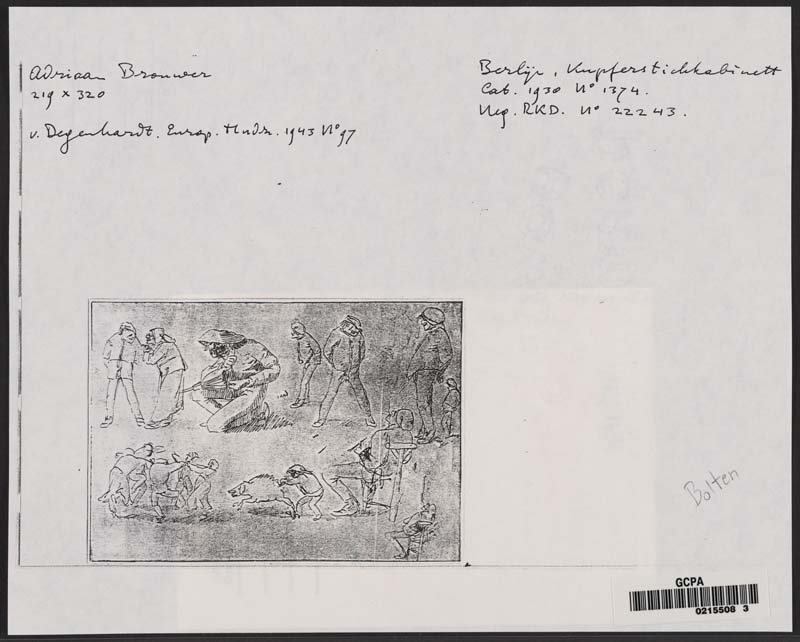 Adriaan Brouwer
219 x 320
v. Degenhardt. Europ. Hndz. 1943 N° 97
Berlijn, Kupferstichkabinett
Cat. 1930 N° 1374.
Neg. RKD. N° 22243.
Bolten
GCPA
0215508 3